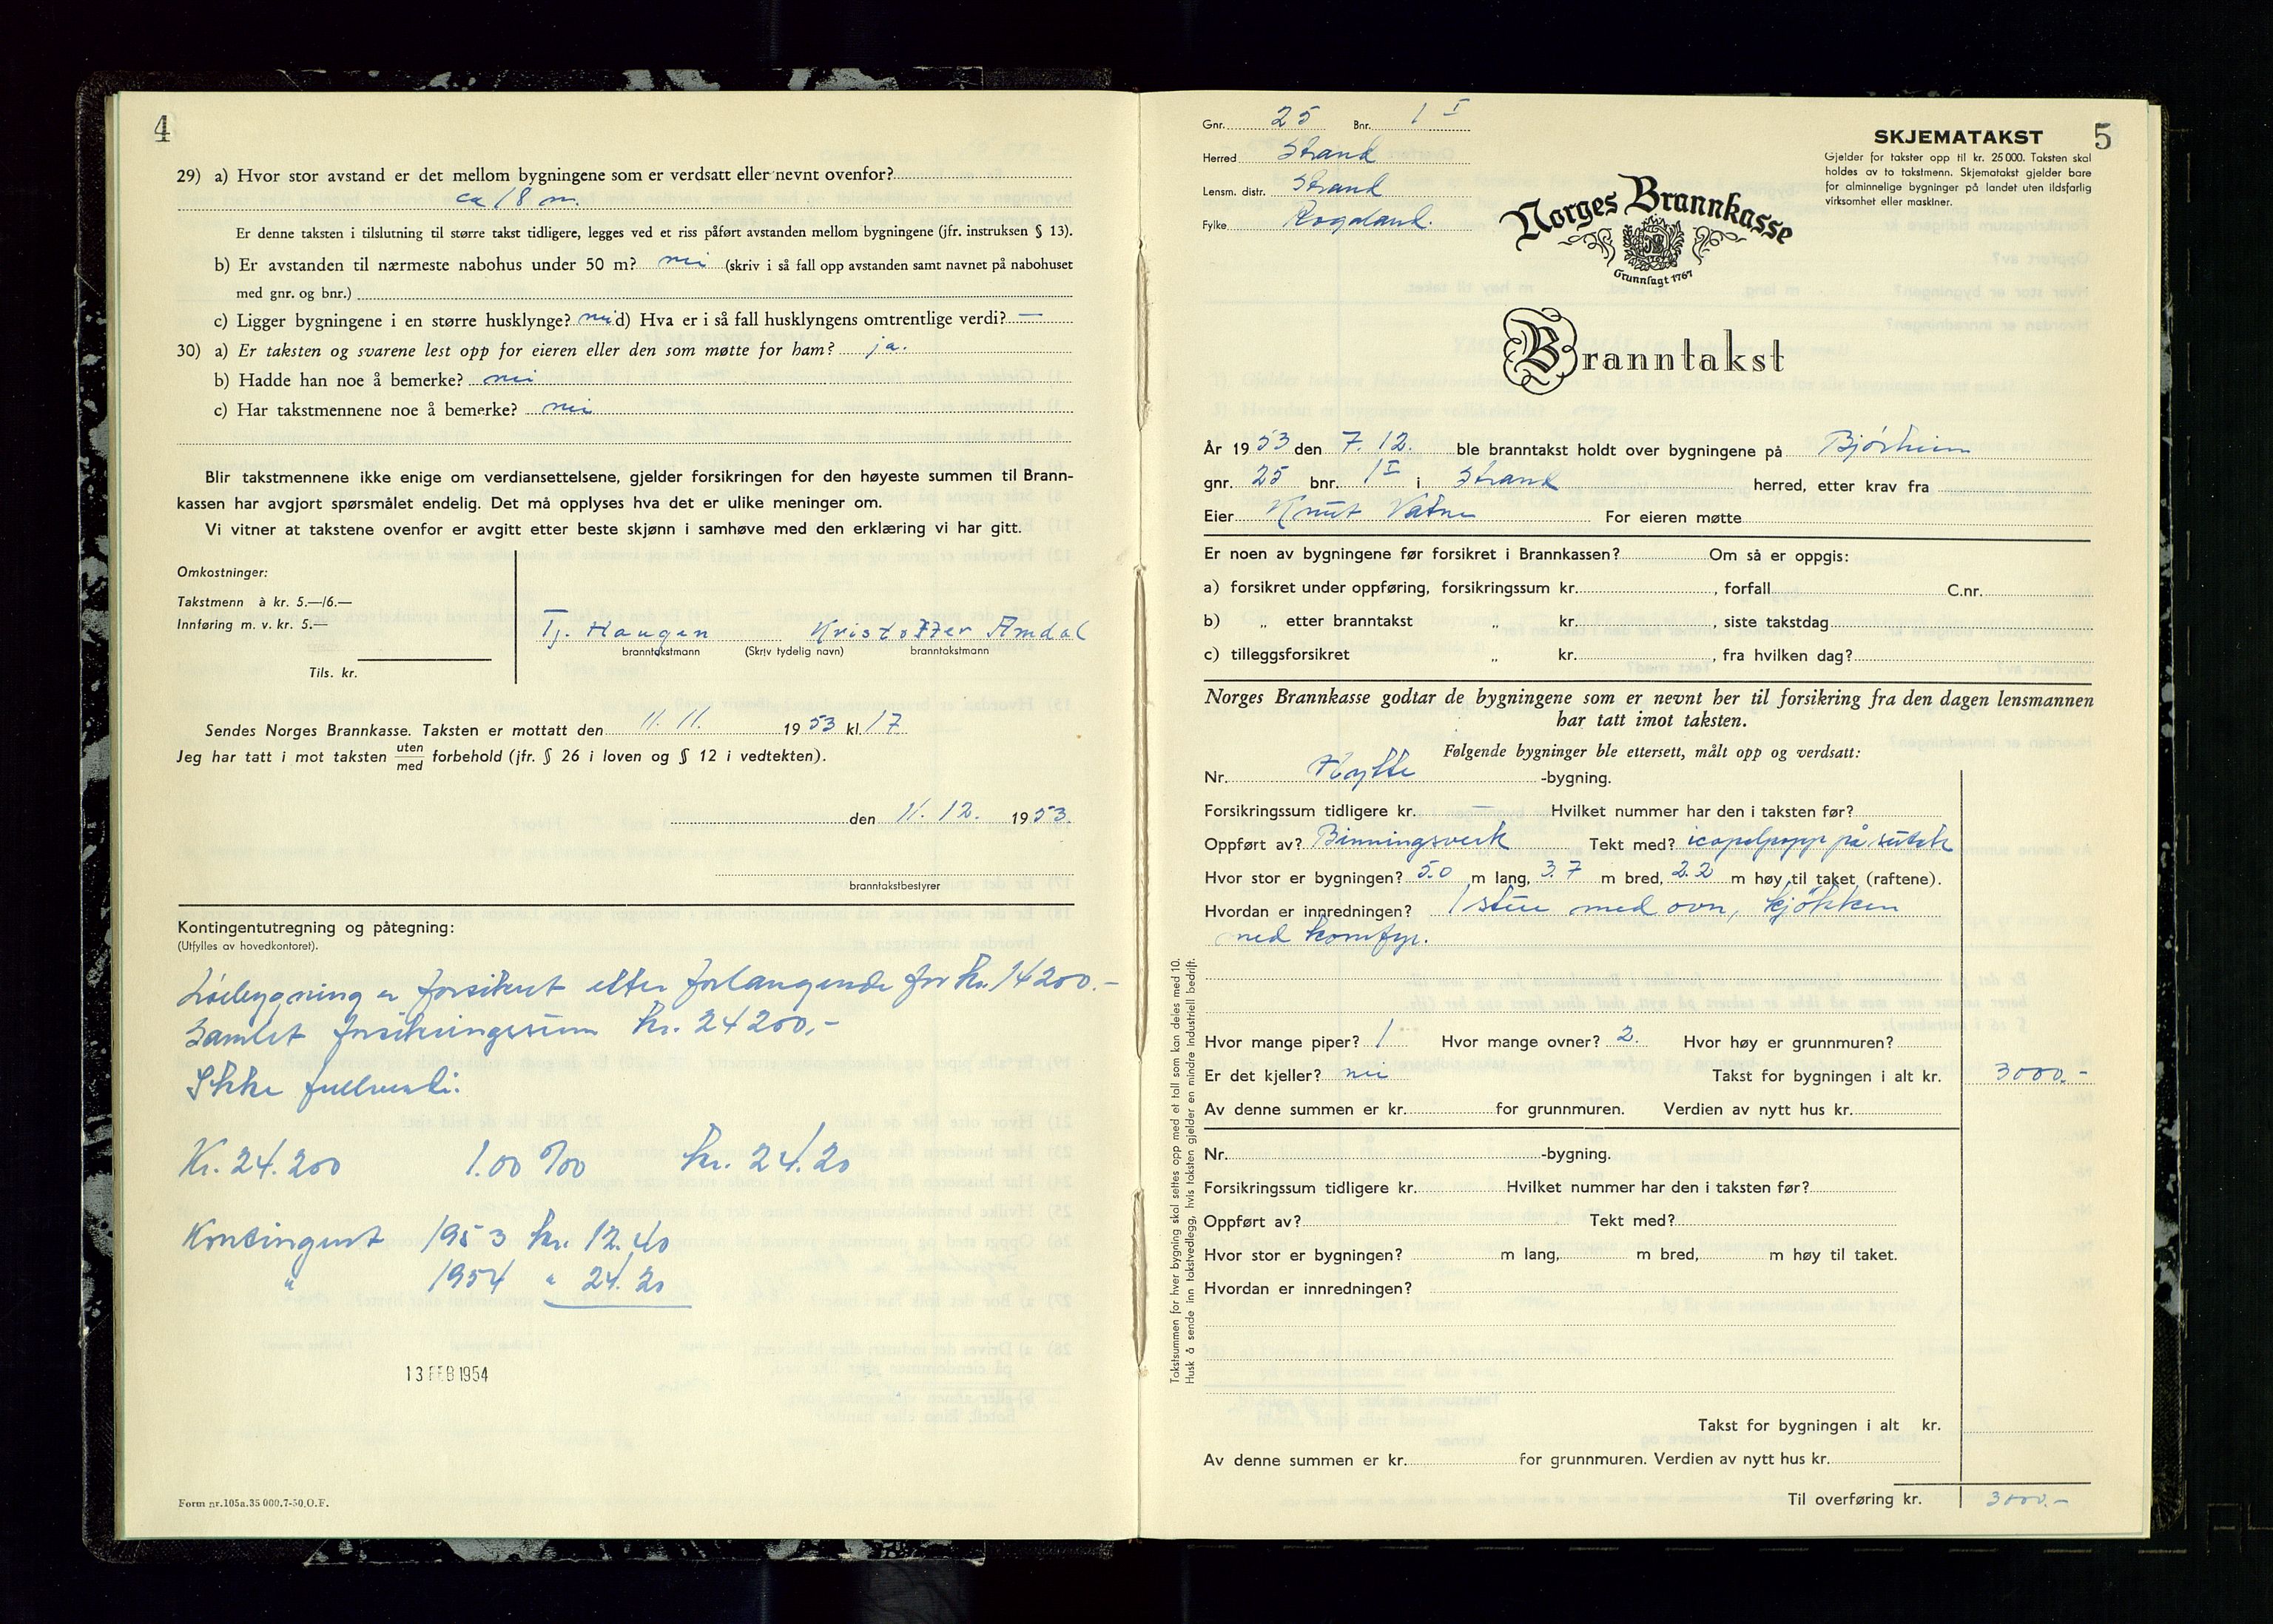 4
29) a) Hvor stor avstand er det mellom bygningene som er verdsatt eller nevnt ovenfor?
ca 18 m.
Er denne taksten i tilslutning til større takst tidligere, legges ved et riss påført avstanden mellom bygningene (jfr. instruksen § 13).
b) Er avstanden til nærmeste nabohus under 50 m? nei (skriv i så fall opp avstanden samt navnet på nabohuset
med gnr. og bnr.)
c) Ligger bygningene i en større husklynge? nei d) Hva er i så fall husklyngens omtrentlige verdi? —
30) a) Er taksten og svarene lest opp for eieren eller den som møtte for ham? ja.
b) Hadde han noe å bemerke? nei
c) Har takstmennene noe å bemerke? nei
Blir takstmennene ikke enige om verdiansettelsene, gjelder forsikringen for den høyeste summen til Brann-
kassen har avgjort spørsmålet endelig. Det må opplyses hva det er ulike meninger om.
Vi vitner at takstene ovenfor er avgitt etter beste skjønn i samhøve med den erklæring vi har gitt.
Omkostninger:
Takstmenn à kr. 5.—/6.—
Innføring m. v. kr. 5.—
Tils. kr.
Tj. Haugen Kristoffer Amdal
branntakstmann (Skriv tydelig navn) branntakstmann
Sendes Norges Brannkasse. Taksten er mottatt den 11. 11. 1953 kl. 17
Jeg har tatt i mot taksten uten/med forbehold (jfr. § 26 i loven og § 12 i vedtekten).
den 11. 12. 1953.
branntakstbestyrer
Kontingentutregning og påtegning:
(Utfylles av hovedkontoret).
Löebygning er forsikret etter forlangende for kr. 14200.-
Samlet forsikringssum kr. 24200,-
Ikke fullverdi.
Kr. 24.200 1.00 ‰ kr. 24.20
Kontingent 1953 kr. 12.40
" 1954 " 24.20
13 FEB 1954
Form nr.105a.35 000.7-50.O.F.
Gnr. 25 Bnr. 1 I
Herred Strand
Lensm. distr. Strand
Fylke Rogaland.
SKJEMATAKST 5
Gjelder for takster opp til kr. 25 000. Taksten skal
holdes av to takstmenn. Skjematakst gjelder bare
for alminnelige bygninger på landet uten ildsfarlig
virksomhet eller maskiner.
Norges Brannkasse
Grunnlagt 1767
Branntakst
År 1953 den 7. 12. ble branntakst holdt over bygningene på Bjørheim
gnr. 25 bnr. 1 I i Strand herred, etter krav fra
Eier Knut Vatne For eieren møtte
Er noen av bygningene før forsikret i Brannkassen? Om så er oppgis:
a) forsikret under oppføring, forsikringssum kr. , forfall C.nr.
b) „ etter branntakst „ kr. , siste takstdag
c) tilleggsforsikret „ kr. , fra hvilken dag?
Norges Brannkasse godtar de bygningene som er nevnt her til forsikring fra den dagen lensmannen
har tatt imot taksten.
Følgende bygninger ble ettersett, målt opp og verdsatt:
Nr. Hytte -bygning.
Forsikringssum tidligere kr. — Hvilket nummer har den i taksten før?
Oppført av? Binningsverk Tekt med? icopalpapp på sutak
Hvor stor er bygningen? 5.0 m lang, 3.7 m bred, 2.2 m høy til taket (raftene).
Hvordan er innredningen? 1 stue med ovn, kjökken
med komfyr.
Hvor mange piper? 1 Hvor mange ovner? 2. Hvor høy er grunnmuren?
Er det kjeller? nei Takst for bygningen i alt kr. 3000.-
Av denne summen er kr. for grunnmuren. Verdien av nytt hus kr.
Nr. -bygning.
Forsikringssum tidligere kr. Hvilket nummer har den i taksten før?
Oppført av? Tekt med?
Hvor stor er bygningen? m lang, m bred, m høy til taket.
Hvordan er innredningen?
Takst for bygningen i alt kr.
Av denne summen er kr. for grunnmuren. Verdien av nytt hus kr.
Til overføring kr. 3000.-
Takstsummen for hver bygning skal settes opp med et tall som kan deles med 10.
Husk å sende inn takstvedlegg, hvis taksten gjelder en mindre industriell bedrift.